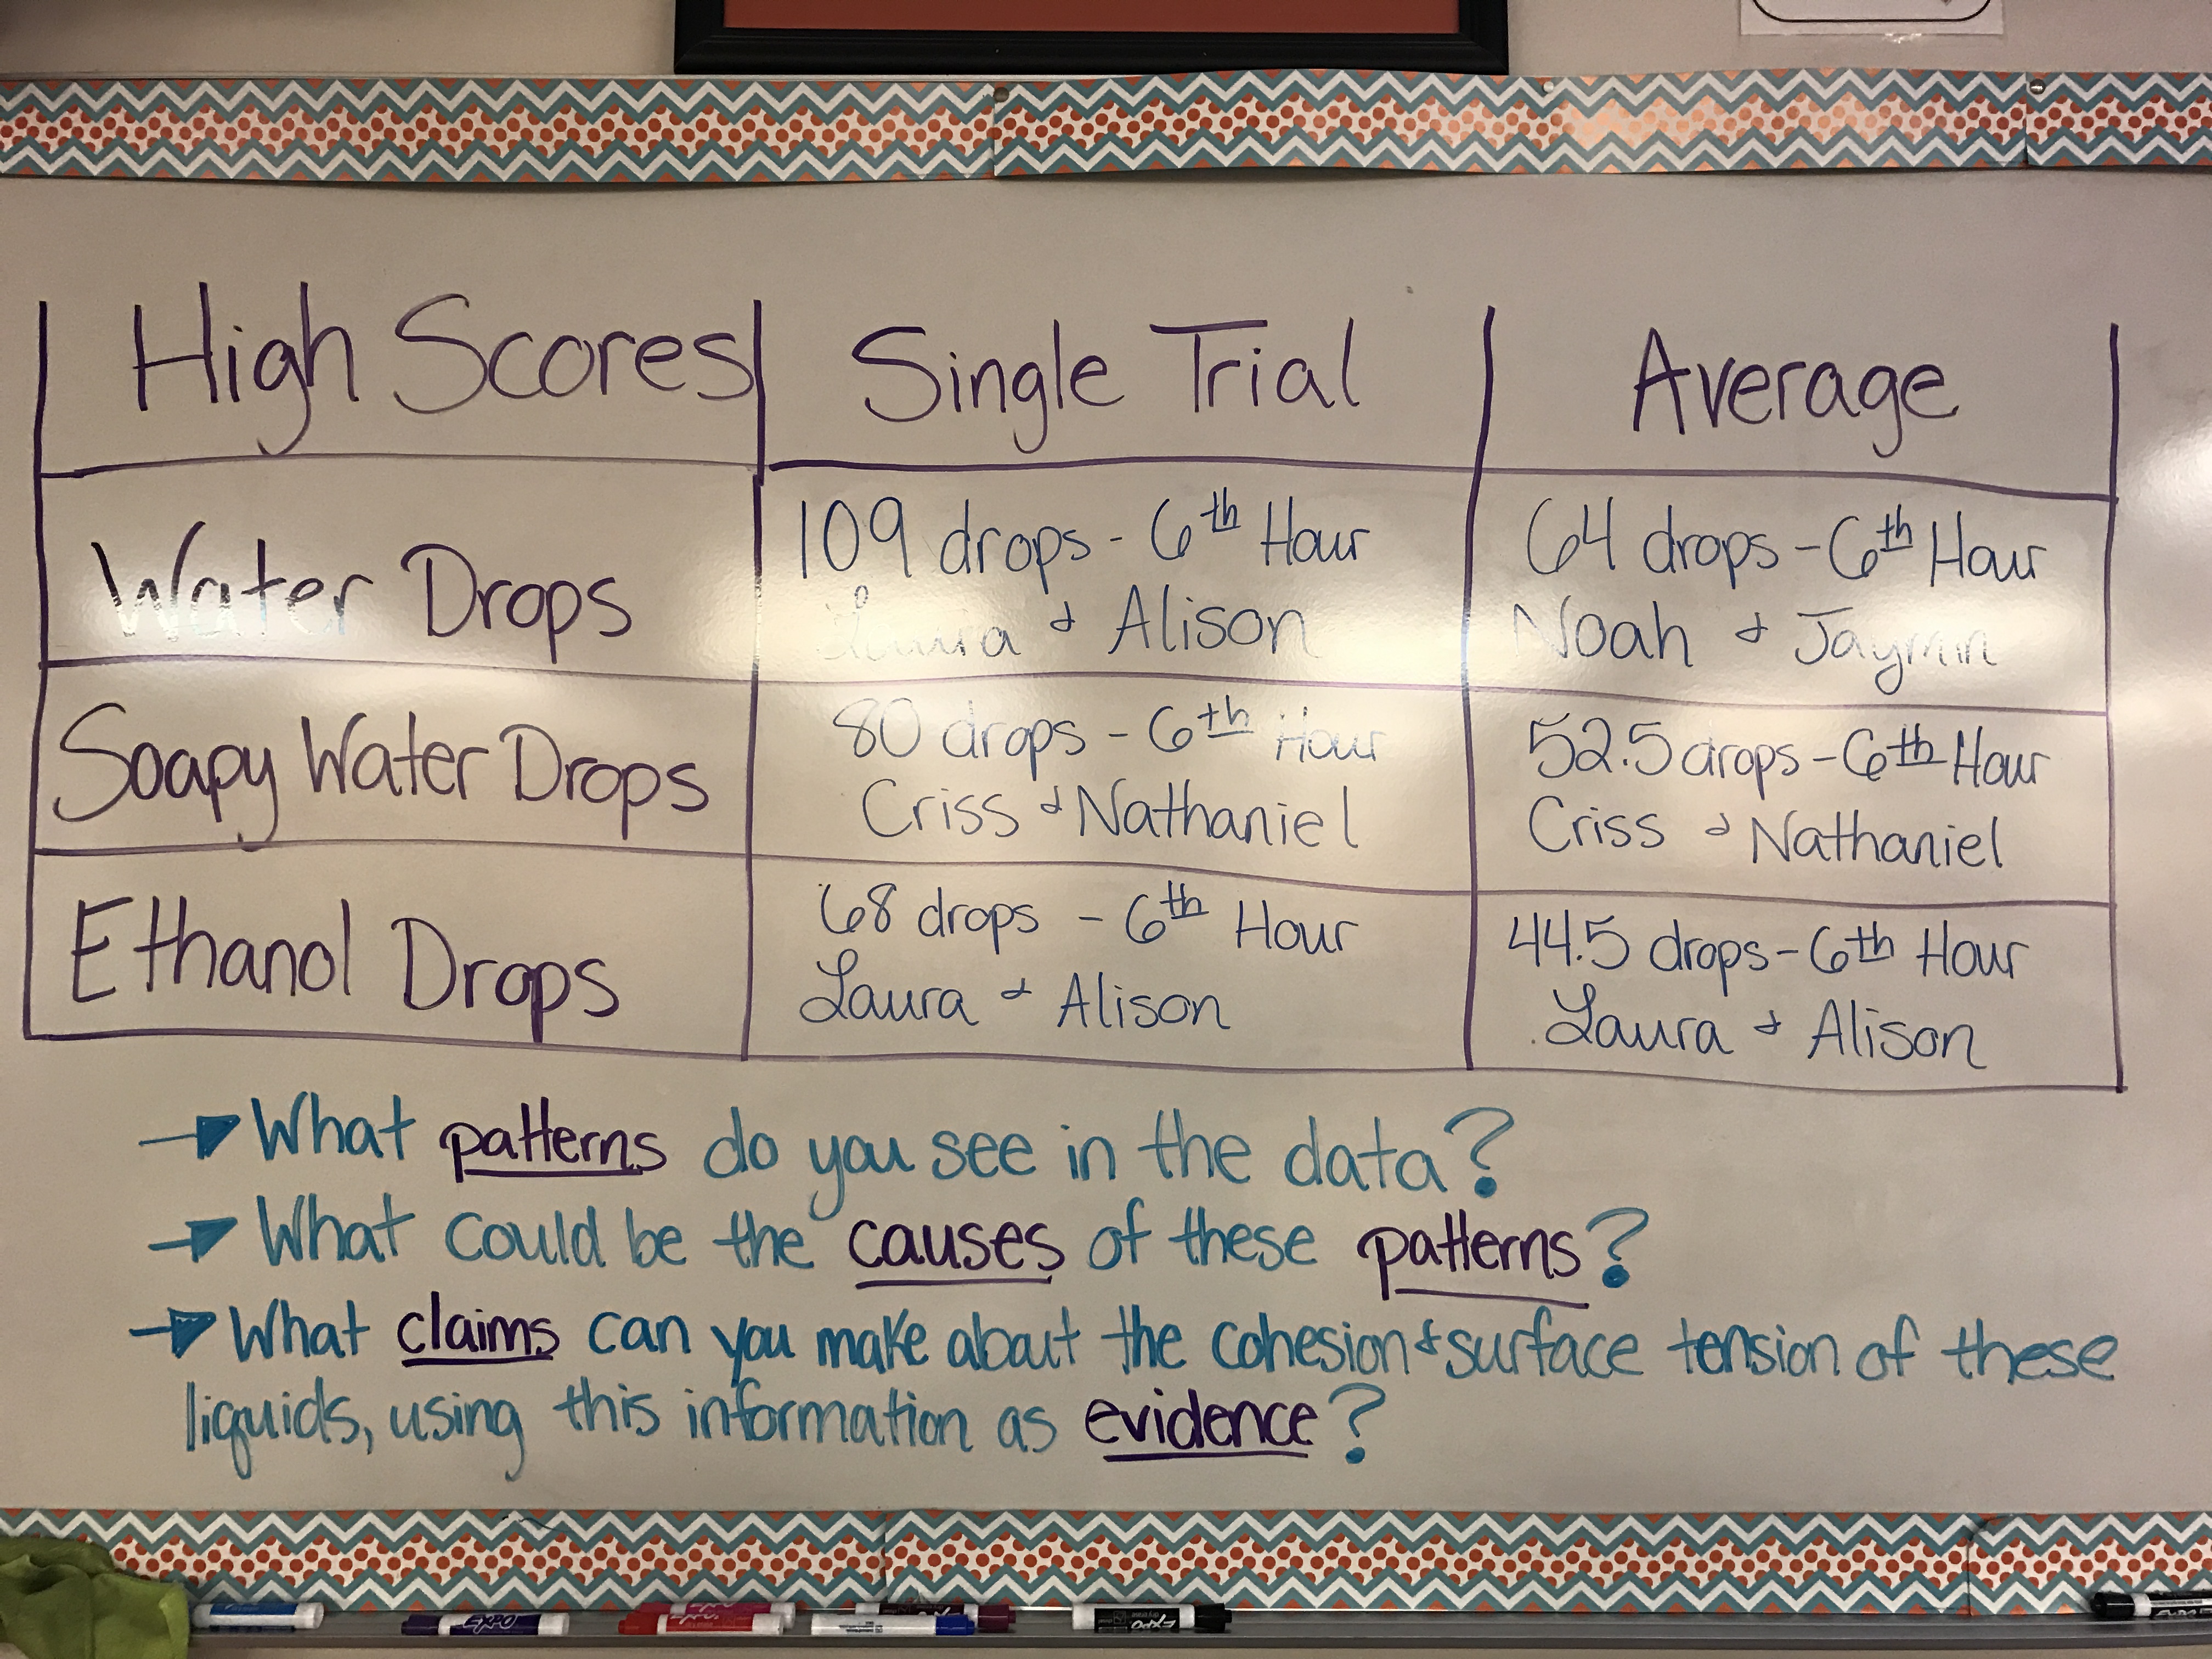 High Scores
Single Trial
Average
Water Drops
109 drops - 6th Hour
Laura & Alison
64 drops - 6th Hour
Noah & Jaymin
Soapy Water Drops
80 drops - 6th Hour
Criss & Nathaniel
52.5 drops - 6th Hour
Criss & Nathaniel
Ethanol Drops
68 drops - 6th Hour
Laura & Alison
44.5 drops - 6th Hour
Laura & Alison
→ What patterns do you see in the data?
→ What could be the causes of these patterns?
→ What claims can you make about the cohesion & surface tension of these
liquids, using this information as evidence?
EXPO
EXPO
EXPO
EXPO